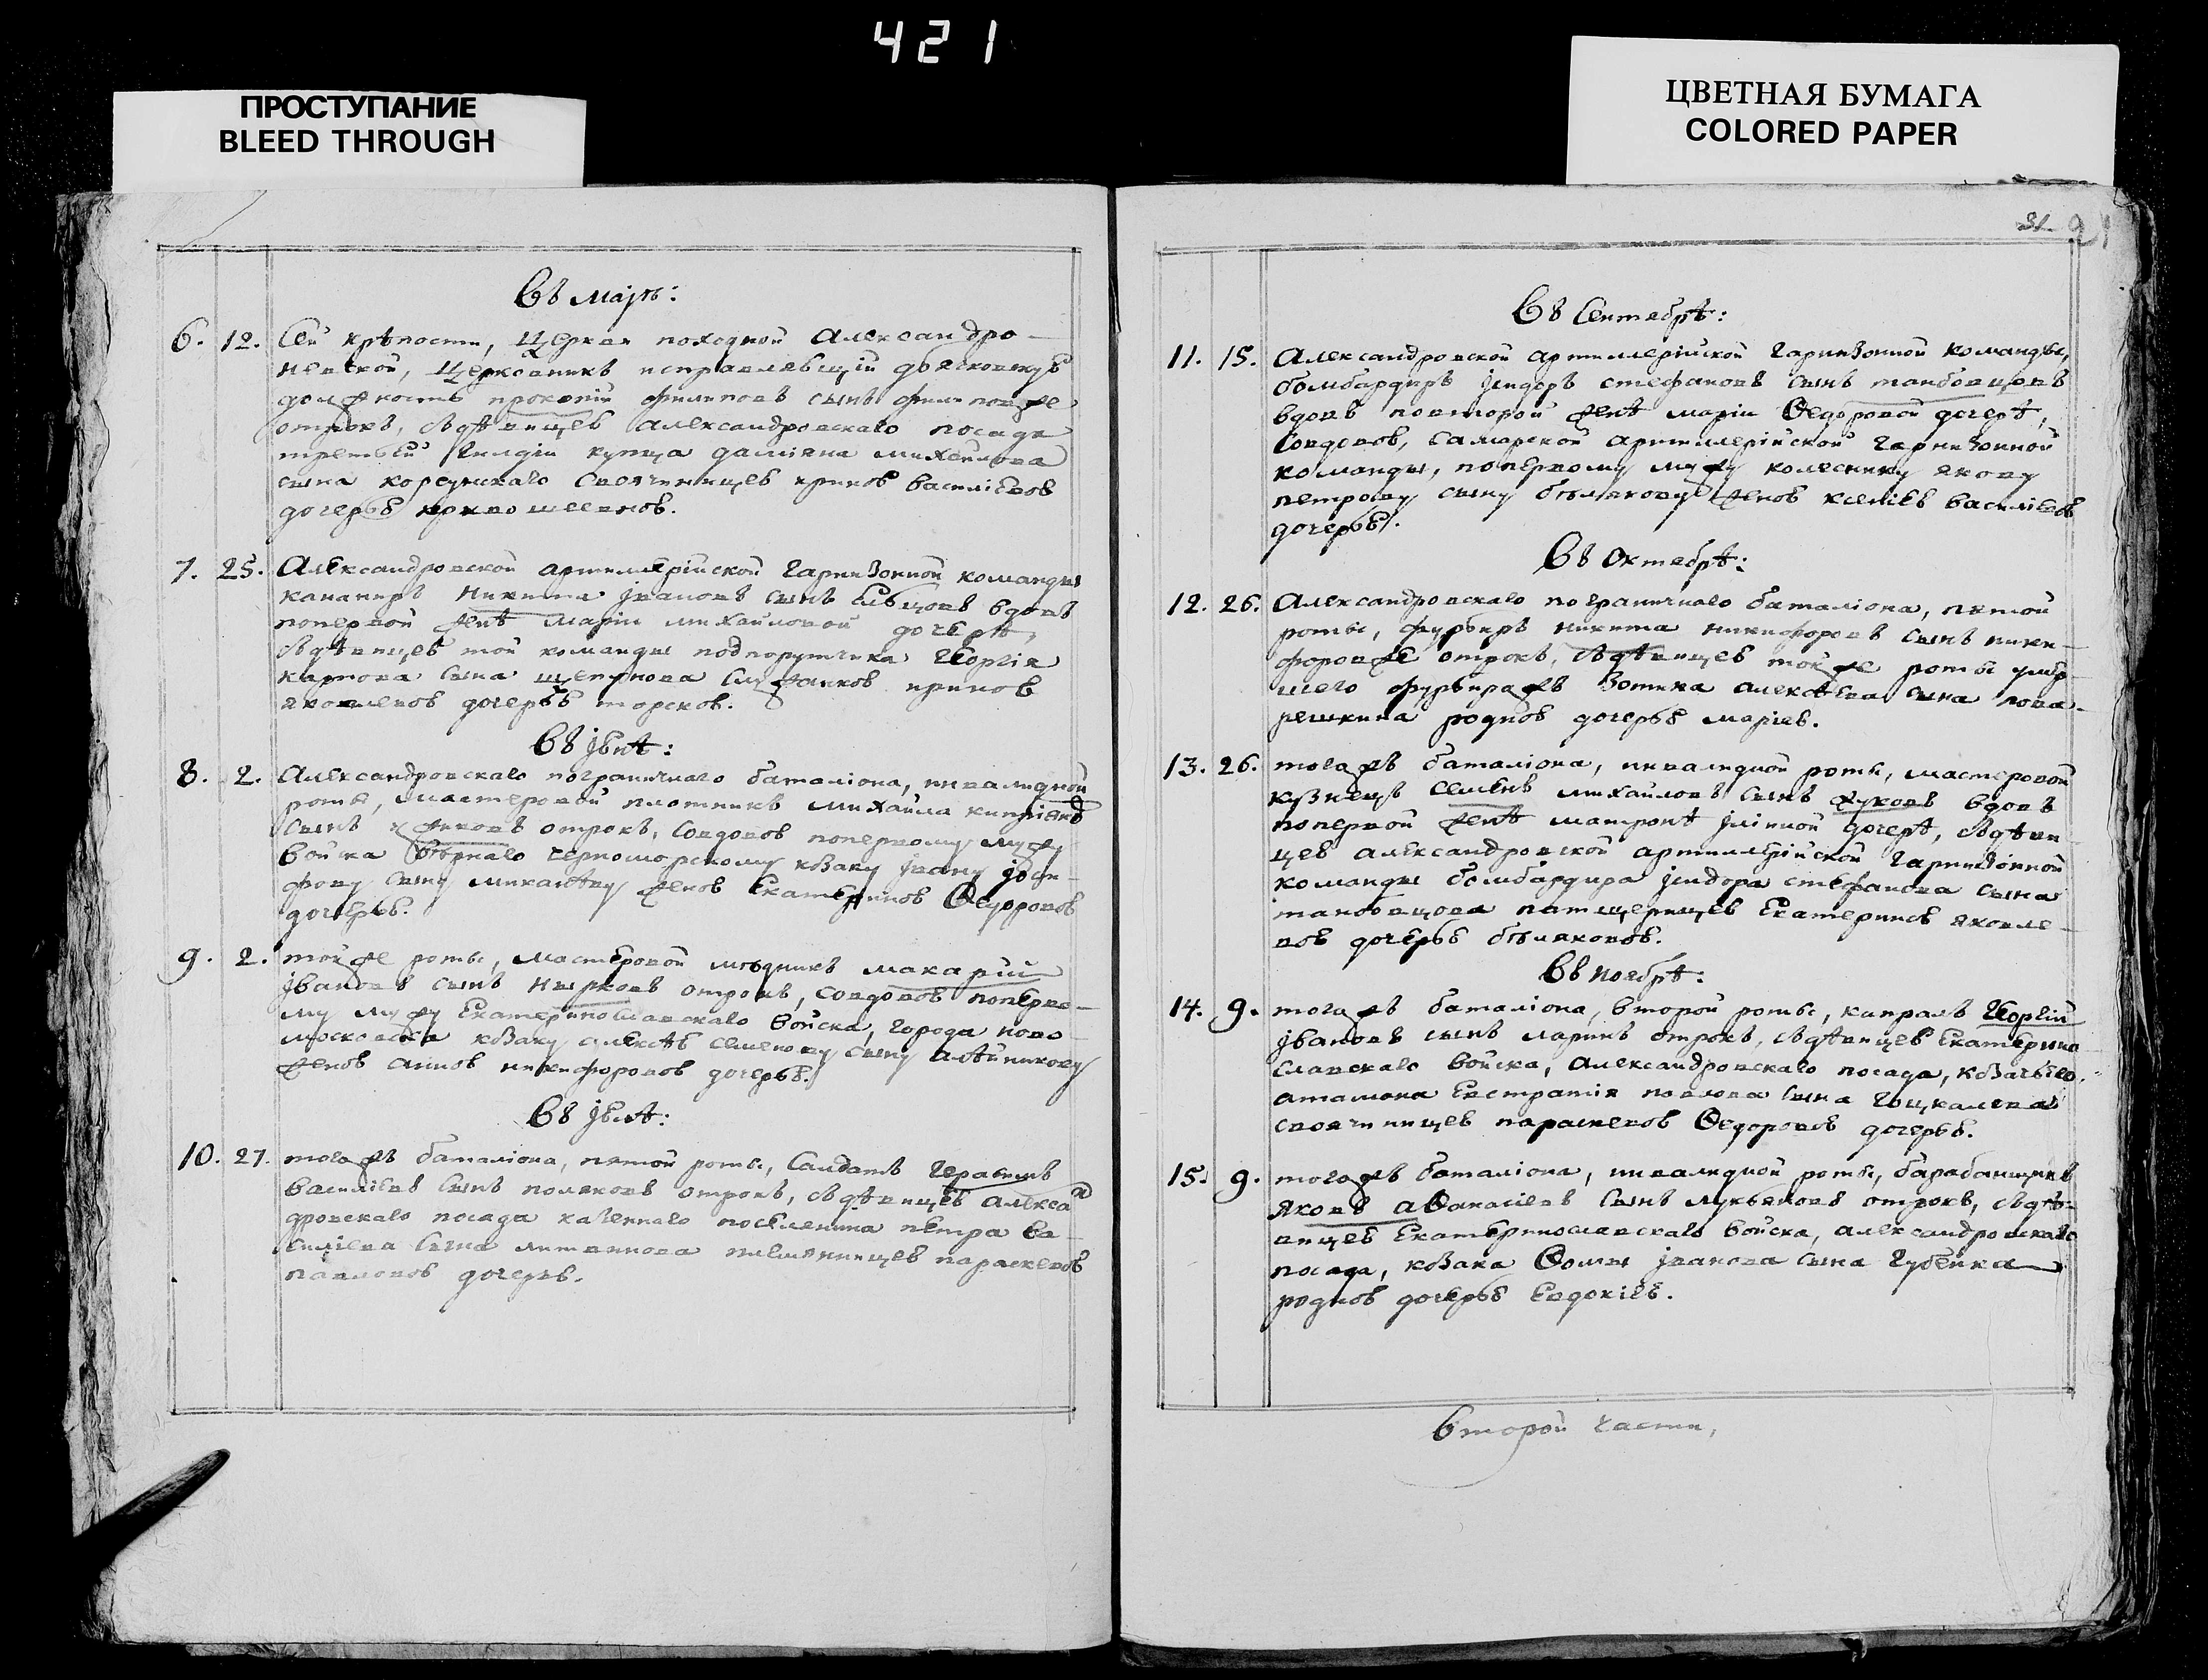 421
ПРОСТУПАНИЕ
BLEED THROUGH
ЦВЕТНАЯ БУМАГА
COLORED PAPER
Въ маiѣ:
6. 12. Сей крѣпости, Церкви походной Александро-
невской, Церковникъ исправляющiй дьячковскую
должность прокопiй филиповъ сынъ филиповже
отрокъ, Сдѣвицею Александровскаго посада
третьей Гилдiи купца дамiяна михайлова
сына корсунскаго Своячиницею ириною Василiевою
дочерью кривошеевною.
7. 25. Александровской артиллерiйской Гарнизонной команды
Канониръ Никита Iвановъ сынъ вдовъ
поперво́й женѣ марiи михайловой дочерѣ,
Сдѣвицею той команды подпорутчика Георгiя
карпова Сына щепунова Служанкою ириною
яковлевою дочерью торскою.
Въ Iюнѣ:
8. 2. Александровскаго пограничнаго баталiона, инвалидной
роты, мастеровой плотникъ михайла кипрiяно
Сынъ отрокъ, Совдовою поперво́му мужу
Войска Вѣрнаго Черноморскому козаку Iвану
Сыну женою Екатериною Ѳедоровою
дочерью.
9. 2. тойже роты, мастеровой мѣдникъ макарiй
Iвановъ сынъ Нырковъ отрокъ, Совдовою поперво-
му мужу Екатеринославскаго Войска, города ново-
московска козаку алексѣю семенову сыну алѣйникову
женою анною никифоровою дочерью.
Въ Iюлѣ:
10. 27. тогожъ баталiона, пятой роты, Салдатъ Герасимъ
Василiевъ Сынъ поляковъ отрокъ, Сдѣвицею алекса
дровскаго посада казеннаго поселенина петра Ва-
силiева Сына литвинова племянницею параскевою
павловою дочерью.
31. 21
Въ Сентябрѣ:
11. 15. Александровской артиллерiйской Гарнизонной Команды,
бомбардиръ Iсидоръ стефановъ сынъ танбовцовъ
вдовъ повторой женѣ марiи Ѳедоровой дочерѣ,
Совдовою, Самарской артиллерiйской Гарнизонной
команды, поперво́му мужу колеснику якову
петрову сыну бѣлякову женою ксенiею Василiевою
дочерью.
Въ Октябрѣ:
12. 26. Александровскаго пограничнаго баталiона, пятой
роты, фурьиръ никита никифоровъ сынъ ники-
форовже отрокъ, Сдѣвицею тойже роты умер
шего фурьиражъ Зотика алексѣева сына пова-
решкина родною дочерью марiею.
13. 26. тогожъ баталiона, инвалидной роты, мастеровой
кузнецъ Семенъ михайловъ Сынъ жуковъ вдовъ
поперво́й женѣ матронѣ Iлiиной дочерѣ, Сдѣви
цею Александровской артиллерiйской Гарнизонной
команды бомбардира Iсидора стефанова сына
танбовцова патщерицею Екатериною яковле-
вою дочерью бѣляковою.
Въ ноябрѣ:
14. 9. тогожъ баталiона, второй роты, капралъ Георгiй
Iвановъ сынъ ларинъ отрокъ, Сдѣвицею Екатерино
славскаго Войска, Александровскаго посада, козачьего
атамана Евстратiя павлова Сына
своячиницею параскевою Ѳедоровою дочерью.
15. 9. тогожъ баталiона, инвалидной роты, барабанщикъ
Яковъ аѲанасiевъ Сынъ лукьяновъ отрокъ, Сдѣ-
вицею Екатеринославскаго Войска, александровскаго
посада, козака Ѳомы Iванова Сына Губенка
родною дочерью Евдокiею.
Второй части,